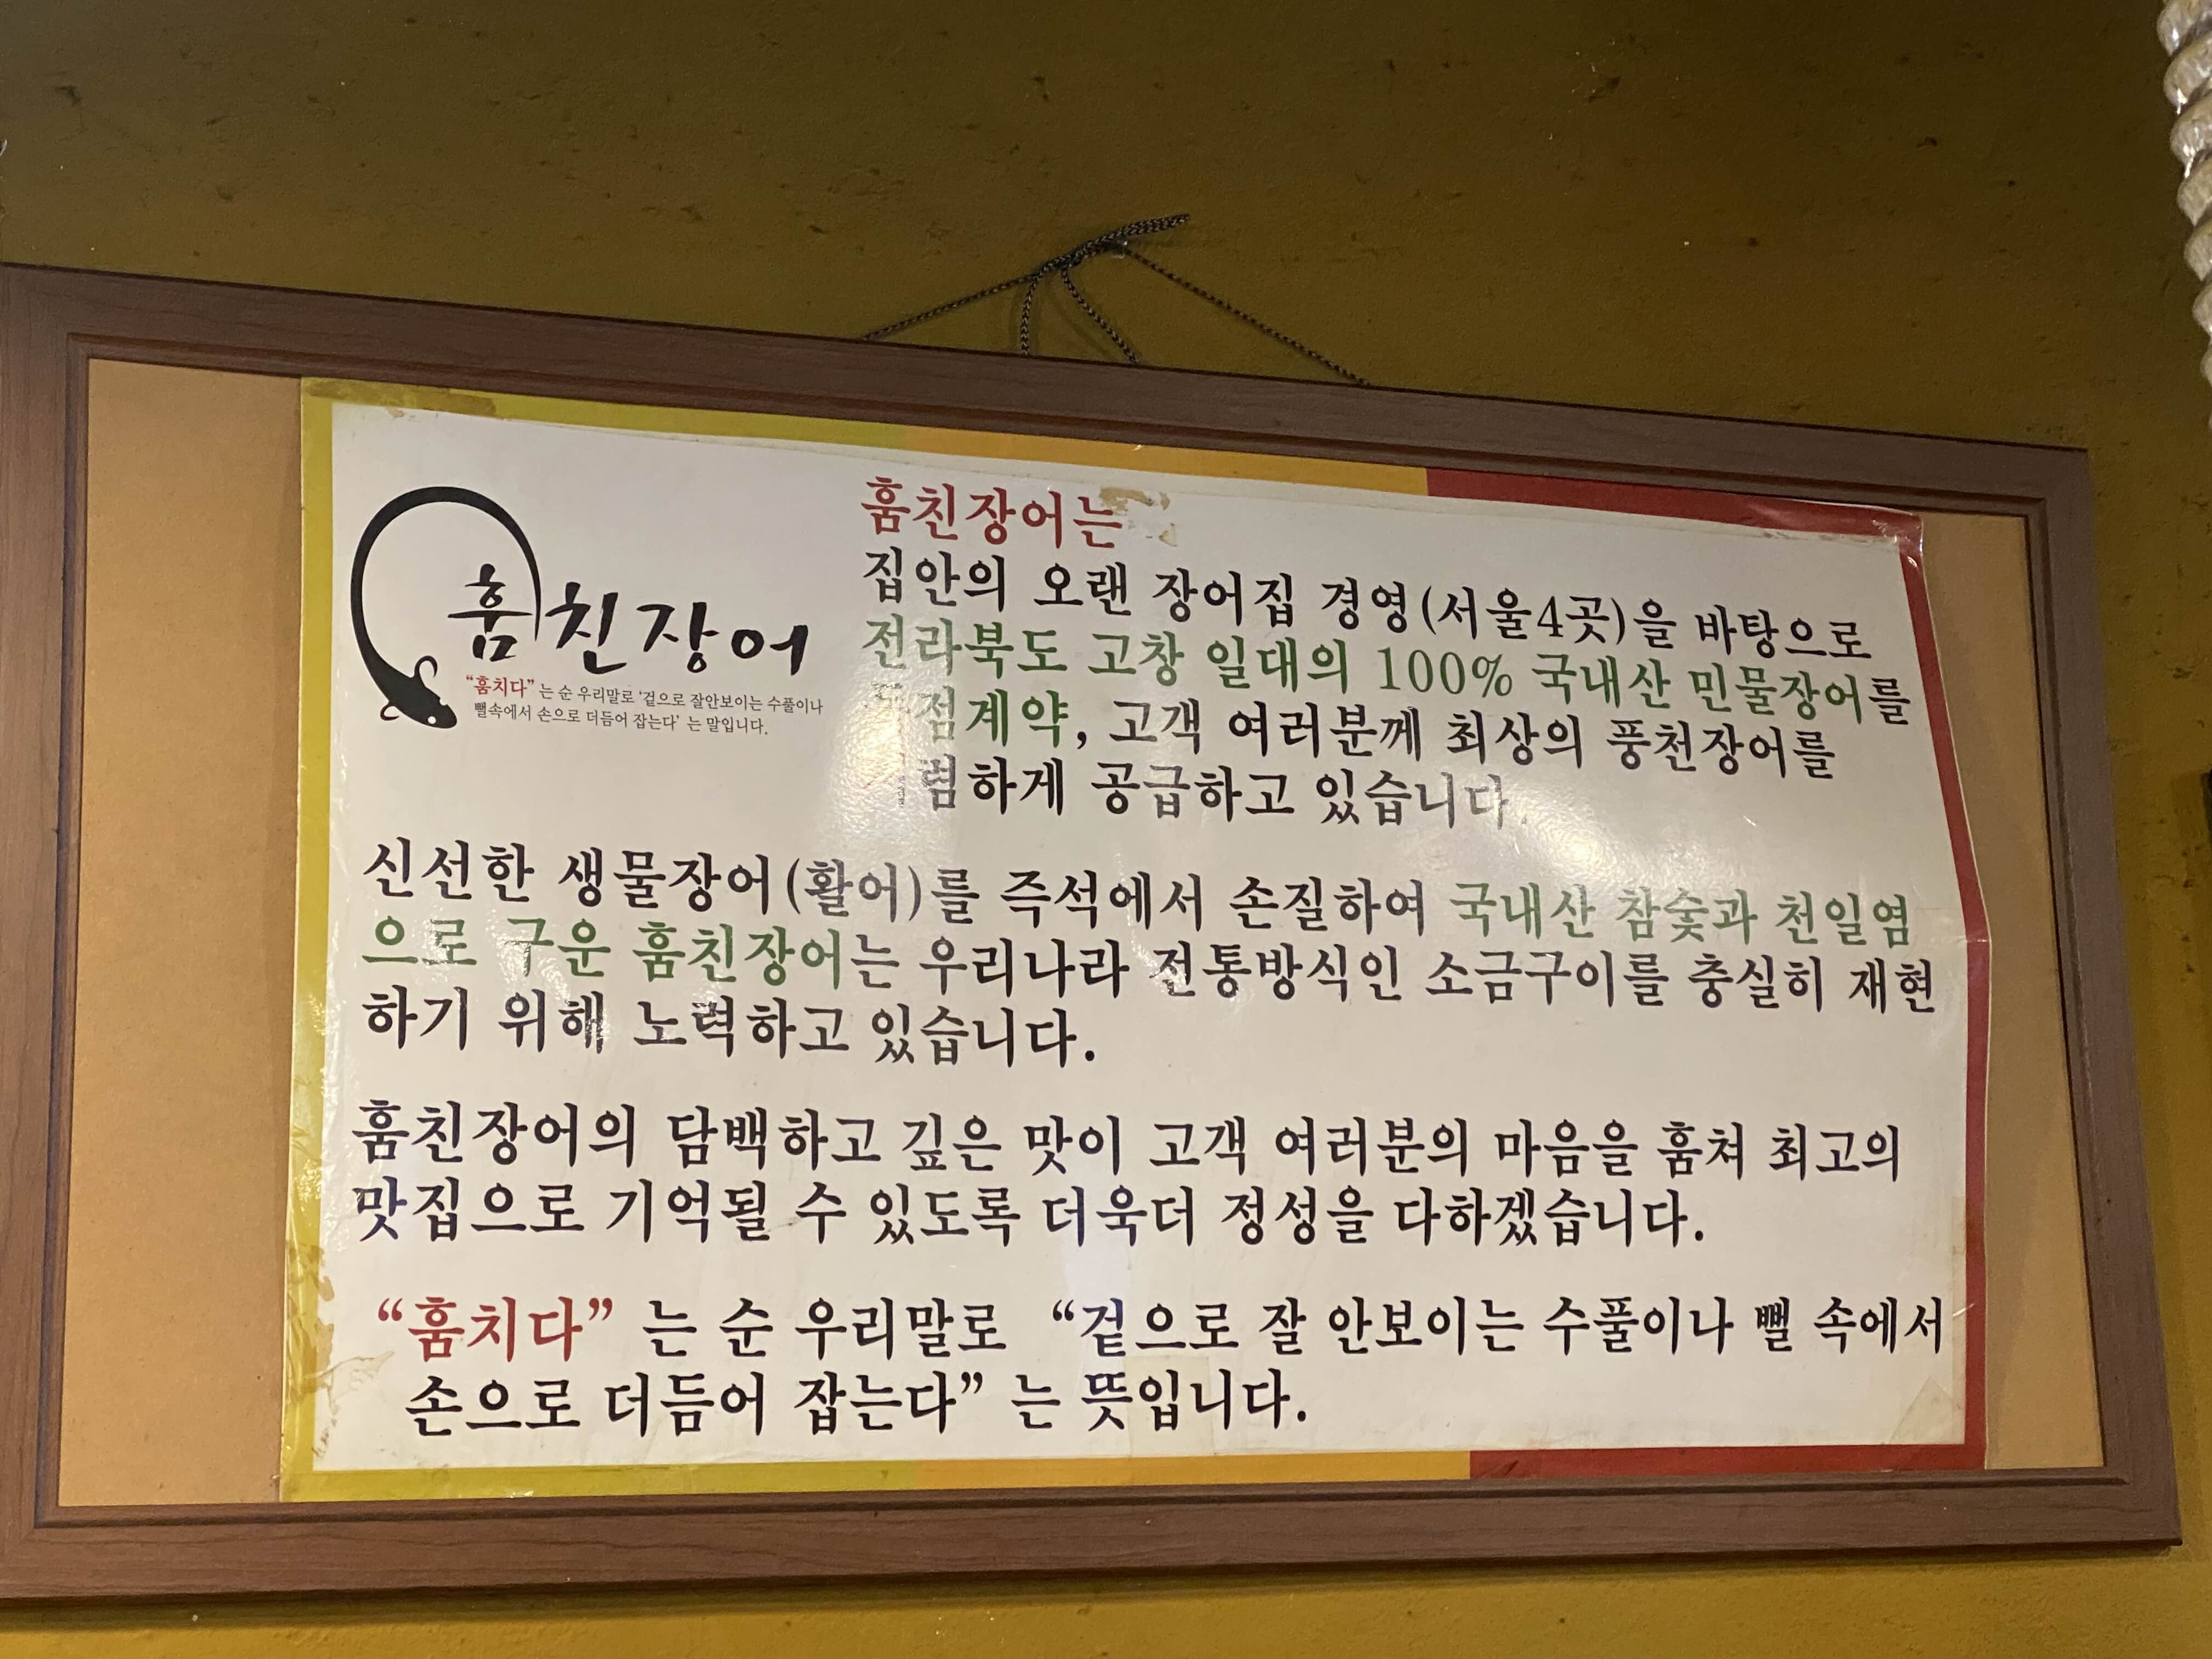 훔친장어
“훔치다” 는 순 우리말로 ‘겉으로 잘안보이는 수풀이나
뻘속에서 손으로 더듬어 잡는다’ 는 말입니다.
훔친장어는
집안의 오랜 장어집 경영(서울4곳)을 바탕으로
전라북도 고창 일대의 100% 국내산 민물장어를
점계약, 고객 여러분께 최상의 풍천장어를
렴하게 공급하고 있습니다.
신선한 생물장어(활어)를 즉석에서 손질하여 국내산 참숯과 천일염
으로 구운 훔친장어는 우리나라 전통방식인 소금구이를 충실히 재현
하기 위해 노력하고 있습니다.
훔친장어의 담백하고 깊은 맛이 고객 여러분의 마음을 훔쳐 최고의
맛집으로 기억될 수 있도록 더욱더 정성을 다하겠습니다.
“훔치다” 는 순 우리말로 “겉으로 잘 안보이는 수풀이나 뻘 속에서
손으로 더듬어 잡는다” 는 뜻입니다.